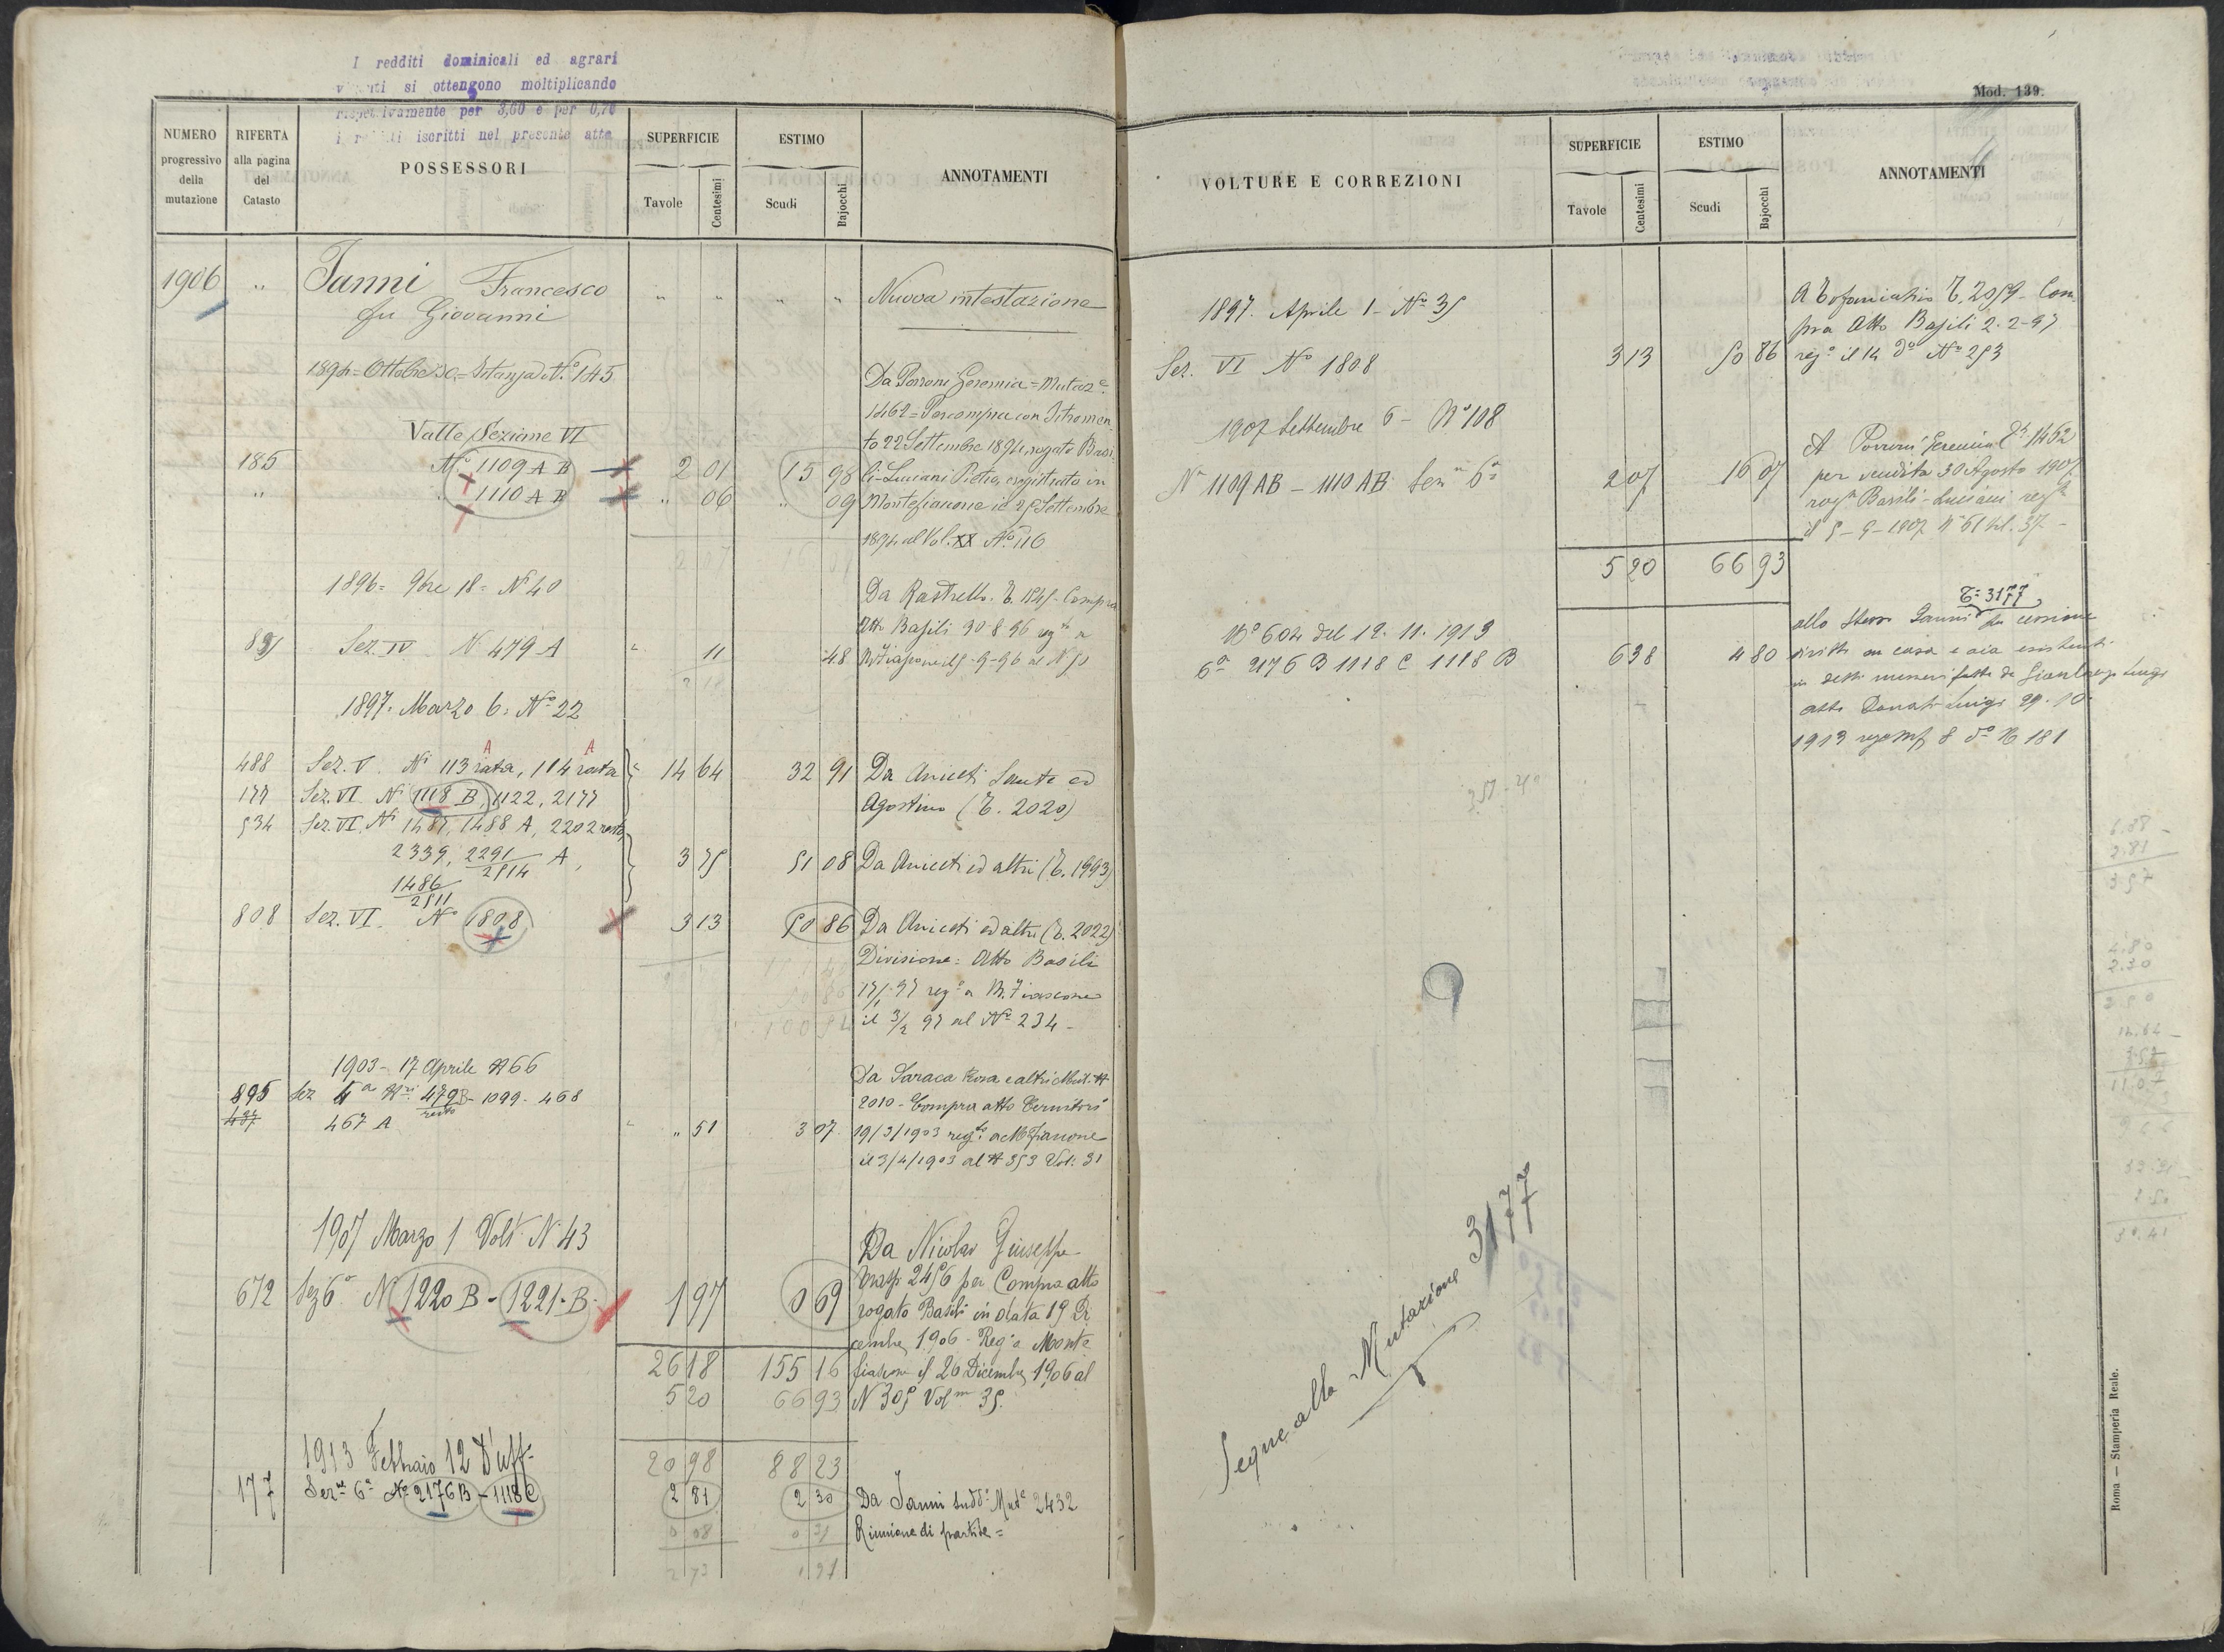 I redditi dominicali ed agrari
si ottengono moltiplicando
rispettivamente per 3,60 e per 0,70
i iscritti nel presente atto
NUMERO progressivo della mutazione
RIFERTA alla pagina del Catasto
POSSESSORI
SUPERFICIE
Tavole Centesimi
ESTIMO
Scudi Bajocchi
ANNOTAMENTI
1906 " Ianni Francesco " " " " Nuova intestazione
fu Giovanni
1894 = Ottobre 30 = Istanza N.° 145
Da Porroni Geremia = Mutaz.e
1462 = Per compra con Istromen
to 22 Settembre 1894, rogato Basi
Valle Sezione VI
185 N.° 1109 A B 2 01 15 98 li-Luciani Pietro, registrato in
" " 1110 A B " 06 " 09 Montefiascone il 25 Settembre
1894 al Vol. XX N.° 116
1896 = 9bre 18 = N° 40
Da Rastrello. T. 1845 - Compra
Atto Basili 30 8 96 reg° a
Sez. IV N 479 A " 11 48 M.Fiascone il 5-9-96 al N 50
1897. Marzo 6. N° 22
A A
488 Sez. V. Ni 113 rata, 114 rata 14 64 32 91 Da Aniceti Sante ed
177 Sez. VI Ni 1118 B, 1122, 2177 Agostino (T. 2020)
534 Sez. VI. Ni 1487, 1488 A, 2202 resto,
2339, 2291/2514 A, 3 75 51 08 Da Aniceti ed altri (T. 1993)
1486/2511
808 Sez. VI. N° 1808 3 13 50 86 Da Aniceti ed altri (T. 2022)
Divisione = Atto Basili
17/1 97 reg° a M.Fiascone
il 3/2 97 al N° 234 -
1903 - 17 Aprile N 66
Da Saraca Rosa e altri Mut. N
895 Sez 4a Nri 479 B resto - 1099 - 468 2010 - Compra atto
467 A " 51 3 07 19/3/1903 reg.to a M.Fiascone
il 3/4/1903 al N 353 Vol: 31
1907 Marzo 1 Volt N. 43
Da Nicolai Giuseppe
2456 per Compra atto
672 Sez 6a N 1220 B - 1221 - B - 1 97 0 69 rogato Basili in data 19 Di
cembre 1906 - Reg° a Monte
26 18 155 16 fiascone il 20 Dicembre 1906 al
5 20 66 93 N 305 Vol.m 35.
1913 Febbraio 12 D'uff.
20 98 88 23
177 Sez.ne 6a No 2176 B - 1118 C 2 81 2 30 Da Ianni Mut.e 2432
0 08 0 31 Riunione di partite =
Mod. 139.
VOLTURE E CORREZIONI
SUPERFICIE
Tavole Centesimi
ESTIMO
Scudi Bajocchi
ANNOTAMENTI
1897. Aprile 1 - N° 35
A T. 2059 - Com
pra Atto Basili 2-2-97
Sez. VI N° 1808 3 13 50 86 reg.° il 14 d° N° 253
1907 Settembre 6 - N° 108
A Porroni Geremia 1462
per vendita 30 Agosto 1907
N° 1109 AB - 1110 AB Sen 6a 2 07 16 07 rog° Basili-Luciani reg°
il 5-9-1907 N° 61 Vol. 37 -
5 20 66 93
T. 3177
allo stesso Ianni per cessione
N° 604 del 12. 11. 1913
6a 2176 B 1118 C 1118 B 6 38 4 80 diritti su casa e aia esistenti
in detti numeri fatta da Luigi
atto Donati Luigi 29. 10.
1913 8 d° N 181
6.38 -
2.81
3.57
4.80
2.30
2.50
14.64 -
3.57
11.07
Segue alla Mutazione 3177
Roma — Stamperia Reale.